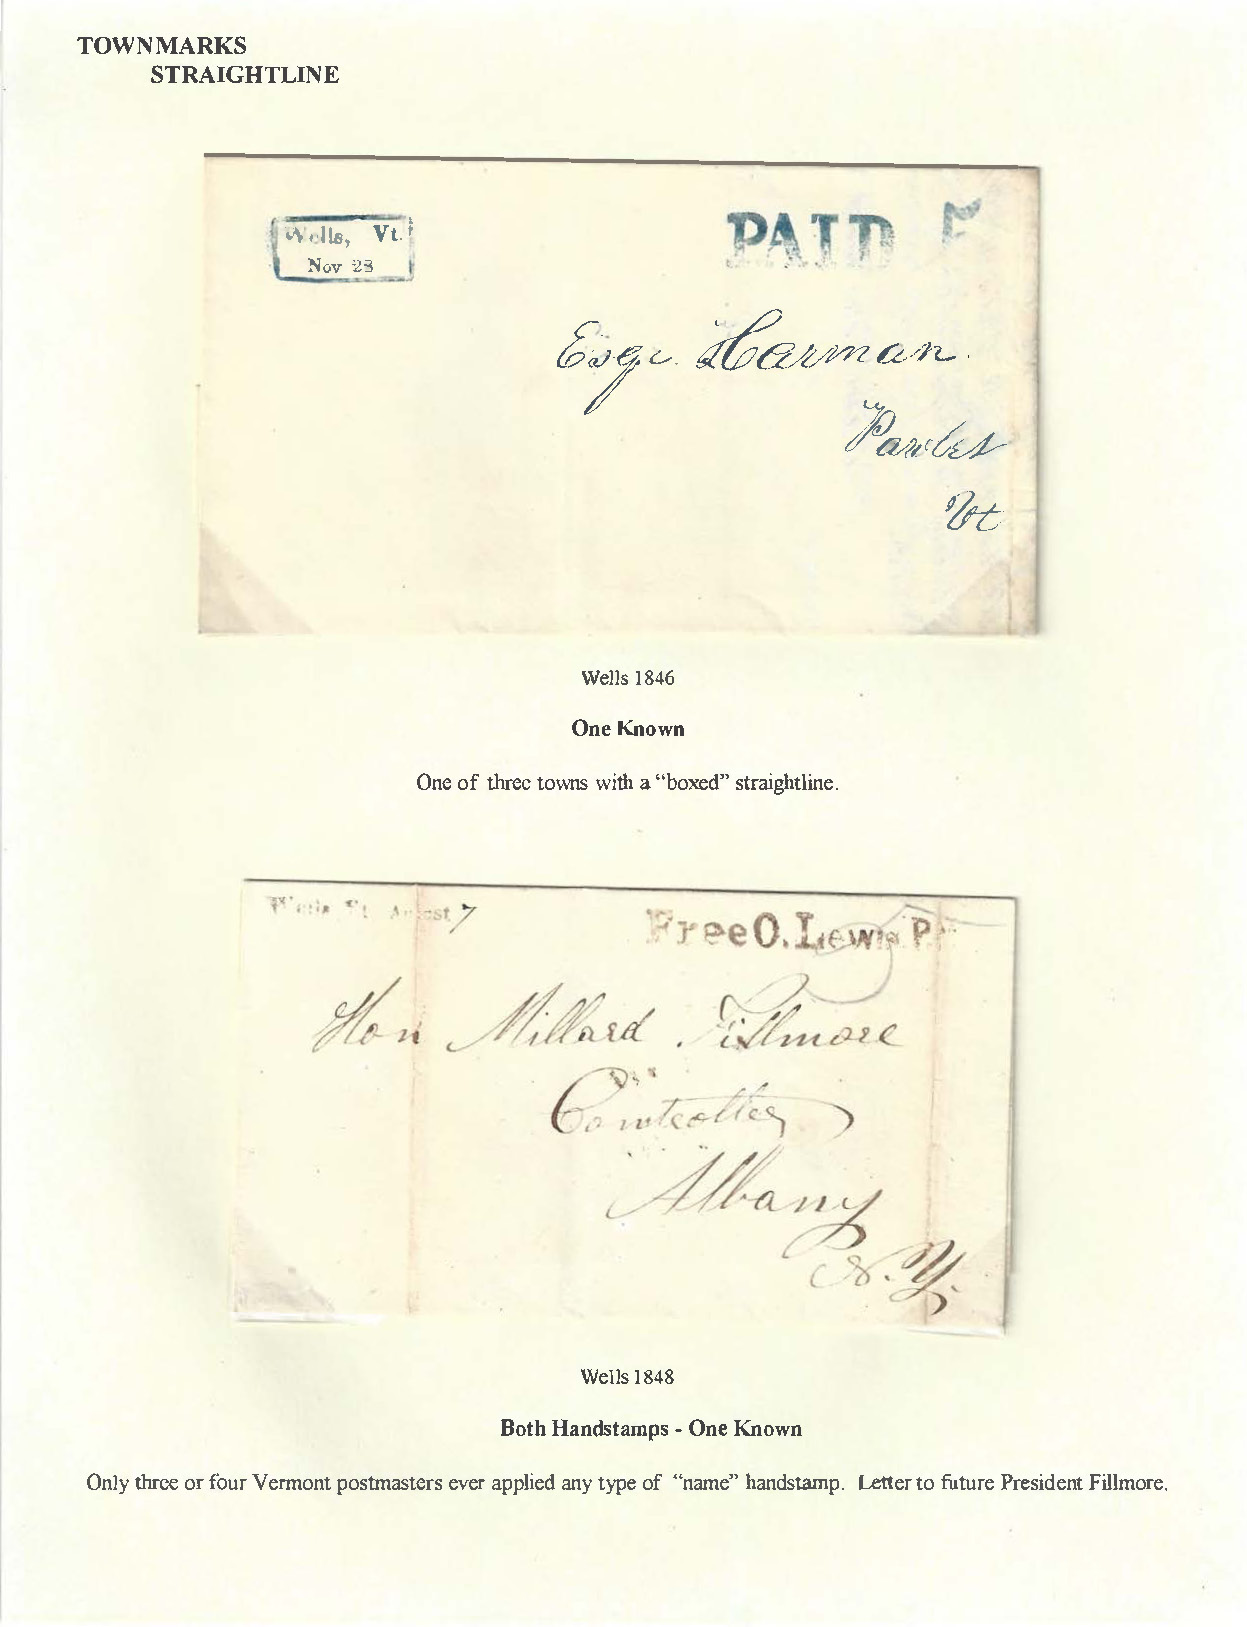 TOWNMARKS
STRAIGHTLINE
Wells, Vt.
Nov 28
PAID 5
Esqr. Harman.
Pawlet
Vt
Wells 1846
One Known
One of three towns with a “boxed” straightline.
Wells Vt. August 7
Free O. Lewis P.
Hon Millard Fillmore
Comtroller
Albany
N.Y.
Wells 1848
Both Handstamps - One Known
Only three or four Vermont postmasters ever applied any type of “name” handstamp. Letter to future President Fillmore.